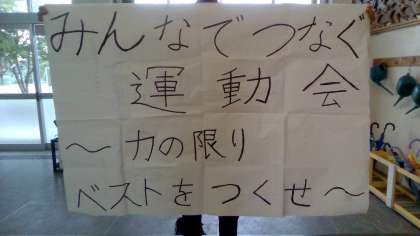 みんなでつなぐ
運動会
～力の限り
ベストをつくせ～